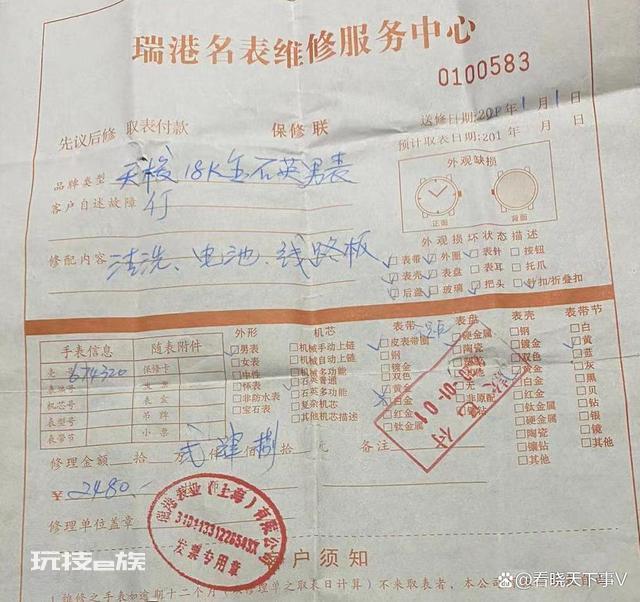 瑞港名表维修服务中心
0100583
先议后修 取表付款 保修联
送修日期:201 年1月1日
预计取表日期:201 年 月 日
品牌类型 天梭 18K金石英男表
客户自述故障 行
修配内容 清洗、电池、线路板
外观缺损
正面 背面
外观损坏状态描述
表带 外圈 表针 按钮
表壳 表盘 表耳 托爪
后盖 玻璃 把头 针扣/折叠扣
手表信息 随表附件
壳 674320 保修卡
机芯号 表盒
表型号 吊牌
表带节 小票
外形
男表
女表
怀表
非防水表
宝石表
机芯
机械手动上链
机械自动上链
机械多功能
石英普通
石英多功能
复杂机芯
其他机芯描述
表带
皮表带圈
钢
镀金
双色
黄金
白金
红金
钛金属
表盘
硬金属
陶瓷
无
非原配
镶钻
表壳
钢
镀金
双色
黄金
白金
红金
钛金属
硬金属
陶瓷
镶钻
其他
表带节
白
黄
蓝
灰
黑
贝
钻
银
镀
其他
修理金额 拾 万 贰仟 肆佰 捌拾 元 备注
¥ 2480.-
修理单位盖章
港表业(上海)有限公司
31011331226545X
发票专用章
户须知
1.维修之手表如逾期十二个月(以修理单之取表日计算)不来取表者,本公
玩技e族
看晓天下事V